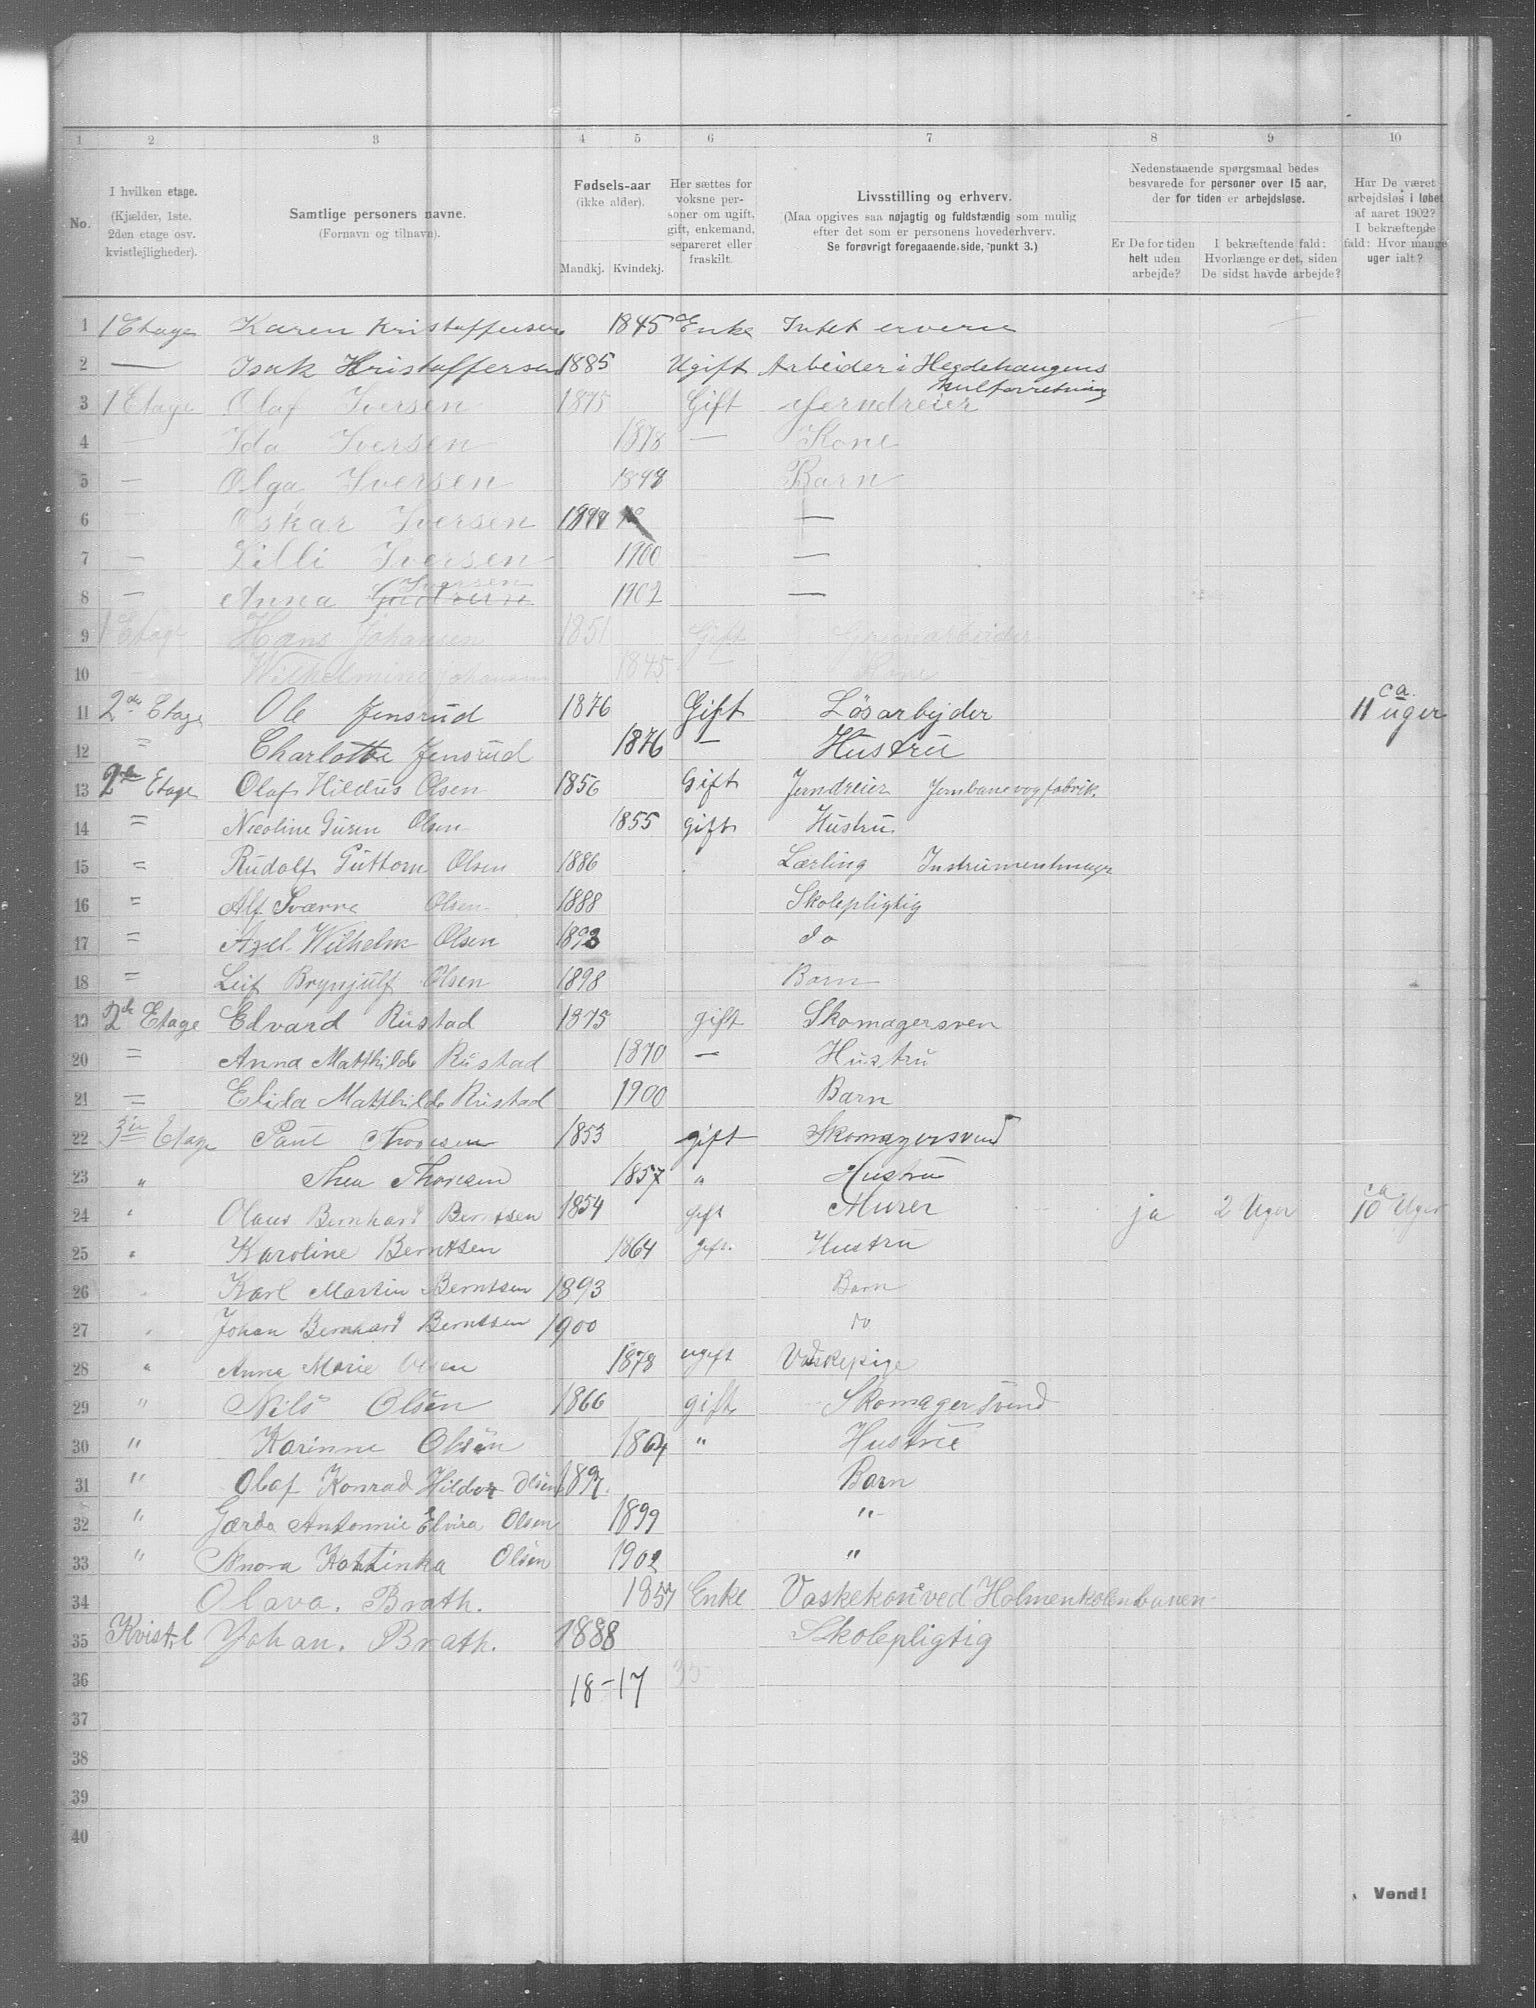 1 2 3 4 5 6 7 8 9 10
No.
I hvilken etage.
(Kjælder, 1ste.
2den etage osv.
kvistlejligheder).
Samtlige personers navne.
(Fornavn og tilnavn).
Fødsels-aar
(ikke alder).
Mandkj. Kvindekj.
Her sættes for
voksne per-
soner om ugift,
gift, enkemand,
separeret eller
fraskilt.
Livsstilling og erhverv.
(Maa opgives saa nøjagtig og fuldstændig som mulig
efter det som er personens hovederhverv.
Se forøvrigt foregaaende side, punkt 3.)
Nedenstaaende spørgsmaal bedes
besvarede for personer over 15 aar,
der for tiden er arbejdsløse.
Er De for tiden
helt uden
arbejde?
I bekræftende fald:
Hvorlænge er det, siden
De sidst havde arbejde?
Har De været
arbejdsløs i løbet
af aaret 1902?
I bekræftende
fald: Hvor mange
uger ialt?
1 1 Etage Karen Kristoffersen 1845 Enke Intet erverv
2 — Isak Kristoffersen 1885 Ugift Arbeider i Hegdehaugens
kulforretning
3 1 Etage Olaf Iversen 1875 Gift Jerndreier
4 — Ida Iversen 1878 — Kone
5 — Olga Iversen 1898 Barn
6 Oskar Iversen 1899 —
7 — Lilli Iversen 1900 —
Iversen
8 — Anna Gudrun 1902 —
9 1 Etage Hans Johansen 1851 Gift Grovarbeider
10 — Wilhelmine Johansen 1845 — Kone
11 2den Etage Ole Jensrud 1876 Gift Løsarbejder ca. 11 uger
12 " Charlotte Jensrud 1876 — Hustru
13 2den Etage Olaf Hildus Olsen 1856 Gift Jerndreier Jernbanevogfabrik.
14 " Nicoline Olsen 1855 Gift Hustru
15 " Rudolf Guttorm Olsen 1886 Lærling Instrumentmager
16 " Alf Sverre Olsen 1888 Skolepligtig
17 " Axel Wilhelm Olsen 1893 do
18 " Leif Brynjulf Olsen 1898 Barn
19 2de Etage Edvard Rustad 1875 gift Skomagersven
20 " Anna Matthilde Rustad 1870 — Hustru
21 " Elida Matthilde Rustad 1900 Barn
22 3die Etage Paul Thoresen 1853 gift Skomagersvend
23 " Thea Thoresen 1857 " Hustru
24 " Olaus Bernhard Berntsen 1854 gift Murer ja 2 Uger ca 10 Uger
25 " Karoline Berntsen 1864 gift. Hustru
26 " Karl Martin Berntsen 1893 Barn
27 " Johan Bernhard Berntsen 1900 do
28 " Anna Marie Olsen 1878 ugift Vaskepige
29 " Nils Olsen 1866 gift Skomagersvend
30 " Karinne Olsen 1864 " Hustru
31 " Olaf Konrad Hildor Olsen 1897. Barn
32 " Gærda Antonnie Elvira Olsen 1899 "
33 " Annora Kattinka Olsen 1902 "
34 Olava. Brath. 1857 Enke Vaskekone ved Holmenkolenbanen
35 Kvist.l Johan. Brath. 1888 Skolepligtig
36 18-17 35
37
38
39
40
Vend!